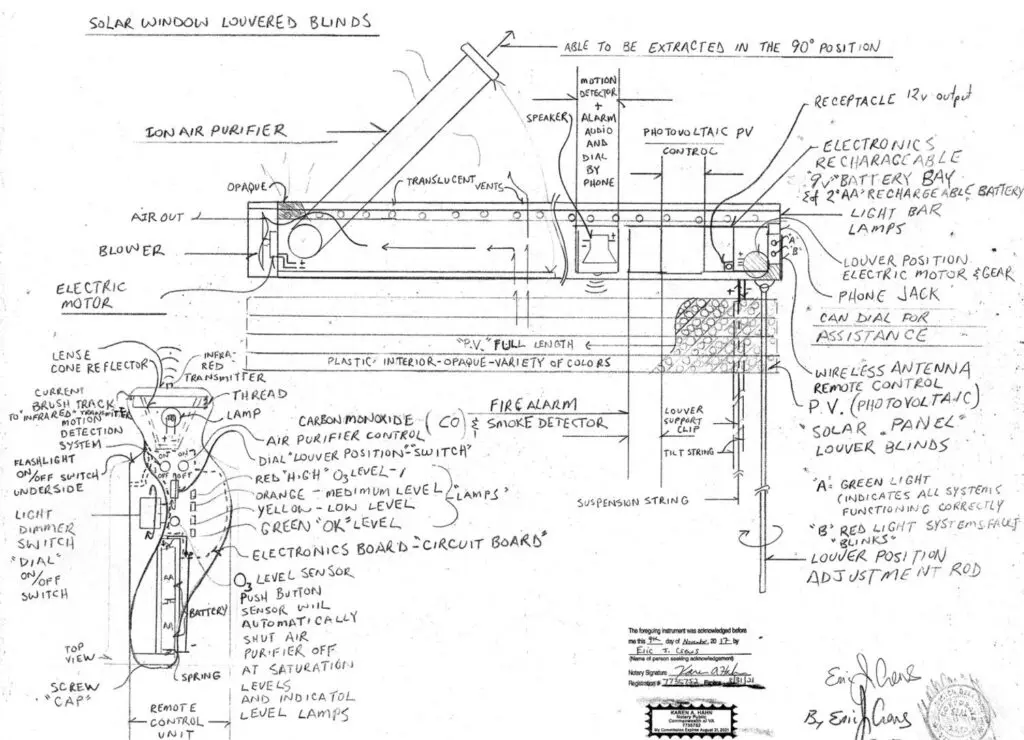 SOLAR WINDOW LOUVERED BLINDS
ABLE TO BE EXTRACTED IN THE 90° POSITION
MOTION
DETECTOR
+
ALARM
AUDIO
AND
DIAL
BY
PHONE
SPEAKER
RECEPTACLE 12V output
ION AIR PURIFIER
PHOTOVOLTAIC PV
CONTROL
ELECTRONICS
RECHARAGEABLE
"9V" BATTERY BAY
& of 2 "AA" RECHARGEABLE BATTERY
OPAQUE
TRANSLUCENT
VENTS
LIGHT BAR
LAMPS
AIR OUT
BLOWER
"A"
"B"
LOUVER POSITION
ELECTRIC MOTOR & GEAR
ELECTRIC
MOTOR
PHONE JACK
CAN DIAL FOR
ASSISTANCE
"P.V." FULL LENGTH
PLASTIC-INTERIOR-OPAQUE-VARIETY OF COLORS
WIRELESS ANTENNA
REMOTE CONTROL
P.V. (PHOTOVOLTAIC)
"SOLAR PANEL"
LOUVER BLINDS
LENSE
CONE REFLECTOR
INFRA-
RED
TRANSMITTER
CURRENT
BRUSH TRACK
TO "INFRARED" TRANSMITTER
MOTION
DETECTION
SYSTEM
THREAD
LAMP
CARBON MONOXIDE (CO)
FIRE ALARM
& SMOKE DETECTOR
AIR PURIFIER CONTROL
DIAL "LOUVER POSITION" "SWITCH"
LOUVER
SUPPORT
CLIP
TILT STRING
SUSPENSION STRING
FLASHLIGHT
ON/OFF SWITCH
UNDERSIDE
ON
ON
OFF
OFF
RED "HIGH" O3 LEVEL
ORANGE - MEDIUM LEVEL
YELLOW - LOW LEVEL
GREEN "OK" LEVEL
"LAMPS"
"A" = GREEN LIGHT
(INDICATES ALL SYSTEMS
FUNCTIONING CORRECTLY
"B" RED LIGHT SYSTEMS FAULT
"BLINKS"
LOUVER POSITION
ADJUSTMENT ROD
LIGHT
DIMMER
SWITCH
"DIAL"
ON/OFF
SWITCH
ELECTRONICS BOARD-"CIRCUIT BOARD"
O3 LEVEL SENSOR
PUSH BUTTON
SENSOR WILL
AUTOMATICALLY
SHUT AIR
PURIFIER OFF
AT SATURATION
LEVELS
AND INDICATOL
LEVEL LAMPS
AA
AA
BATTERY
TOP
VIEW
SPRING
SCREW
"CAP"
REMOTE
CONTROL
UNIT
The foregoing instrument was acknowledged before
me this 9th day of November, 2017 by
Eric J. Crews
(Name of person seeking acknowledgement)
Notary Signature
Registration # 7735752 Expires 8/31/21
KAREN A. HAHN
Notary Public
Commonwealth of VA
7735752
My Commission Expires August 31, 2021
By